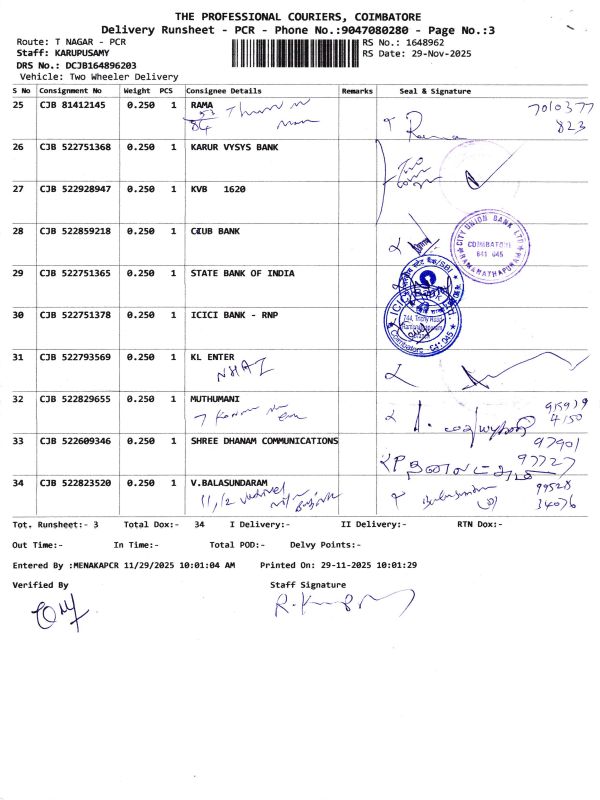 THE PROFESSIONAL COURIERS, COIMBATORE
Delivery Runsheet - PCR - Phone No.:9047080280 - Page No.:3
Route: T NAGAR - PCR
RS No.: 1648962
Staff: KARUPUSAMY
RS Date: 29-Nov-2025
DRS No.: DCJB164896203
Vehicle: Two Wheeler Delivery
S No Consignment No Weight PCS Consignee Details Remarks Seal & Signature
25 CJB 81412145 0.250 1 RAMA 7010377
84 Rama 823
26 CJB 522751368 0.250 1 KARUR VYSYS BANK
27 CJB 522928947 0.250 1 KVB 1620
28 CJB 522859218 0.250 1 CEUB BANK
CITY UNION BANK LTD
COIMBATORE
641 045
RAMANATHAPURAM
29 CJB 522751365 0.250 1 STATE BANK OF INDIA
30 CJB 522751378 0.250 1 ICICI BANK - RNP
Coimbatore 641 045
31 CJB 522793569 0.250 1 KL ENTER
NHAI
32 CJB 522829655 0.250 1 MUTHUMANI
4150
33 CJB 522609346 0.250 1 SHREE DHANAM COMMUNICATIONS 97901
97727
34 CJB 522823520 0.250 1 V.BALASUNDARAM 99528
11,12 34076
Tot. Runsheet:- 3 Total Dox:- 34 I Delivery:- II Delivery:- RTN Dox:-
Out Time:- In Time:- Total POD:- Delvy Points:-
Entered By :MENAKAPCR 11/29/2025 10:01:04 AM Printed On: 29-11-2025 10:01:29
Verified By Staff Signature